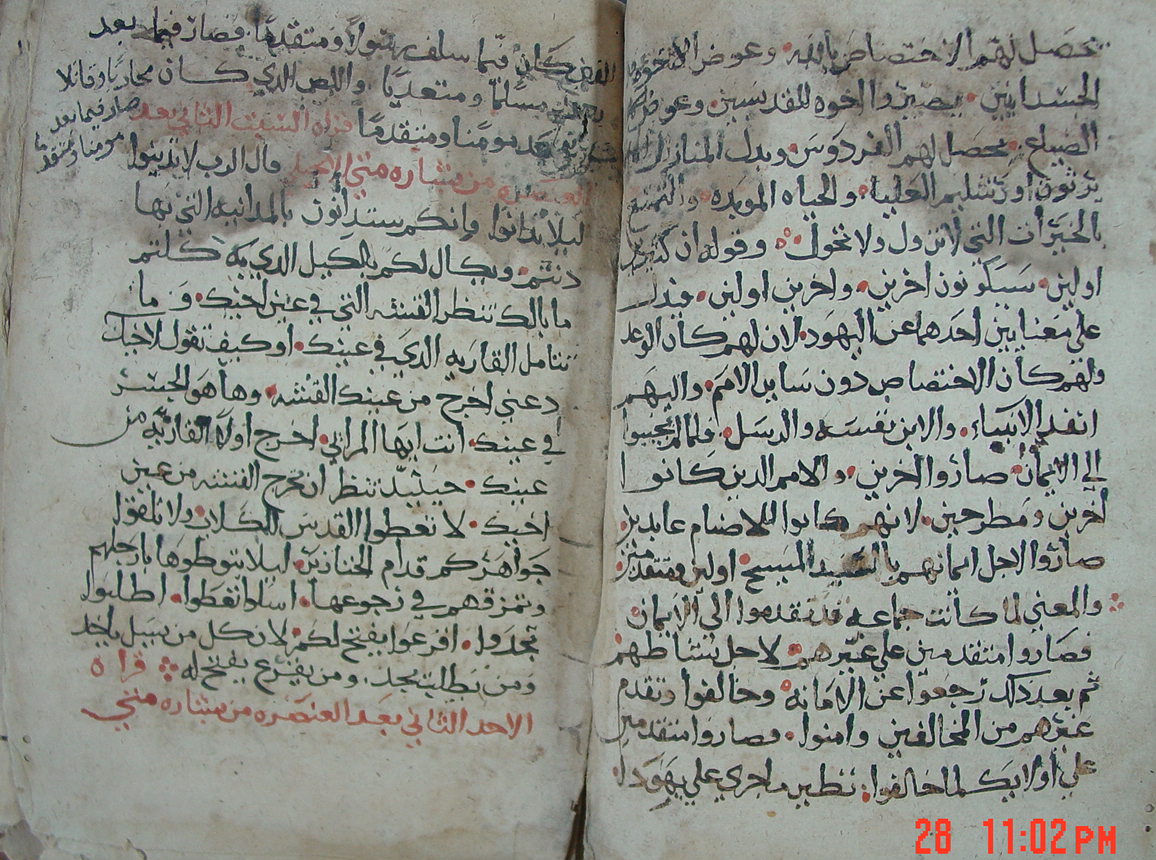 تحصل لهم الاختصاص بالله وعوض الاخوه
الجسدانيين يصيروا اخوه للقديسين وعوض
الضياع يحصل لهم الفردوس وبدل المنازل
يرثون اورشليم العليا والحياه الموبده والتمتع
بالخيرات التي لاتزول ولا تحول وقوله ان كثير
اولين سيكونون اخرين واخرين اولين
علي معنايين احدهما عن اليهود لان لهم كان الوعد
ولهم كان الاختصاص دون ساير الامم واليهم
انفد الانبياء والابن نفسه والرسل فلما لم يجيبوا
الي الايمان صاروا اخرين والامم الدين كانوا
اخرين ومطرحين لانهم كانوا للاصنام عابدين
صاروا لاجل ايمانهم بالسيد المسيح اولين ومتقدمين
والمعني لما كانت جماعه قد تقدموا الي الايمان
فصاروا متقدمين علي غيرهم لاجل نشاطهم
ثم بعد دلك رجعوا عن الامانه وخالفوا وتقدم
غيرهم من المخالفين وامنوا فصاروا متقدمين
علي اولايك لما خالفوا نظير ماجري علي يهودا
كان فيما سلف بتولا ومتقدما فصار فيما بعد
مسلما ومتعديا واللص الدي كان محاربا وقاتلا
صار فيما بعد
مومنا ومتقدما
بعد مومنا ومتقدما قراه السبت الثاني بعد
العنصره من بشاره متي الانجيلي قال الرب لاتدينوا
ليلا تدانوا وانكم ستدانون بالمداينه التي بها
دنتم ويكال لكم بالكيل الدي به كلتم
ما بالك تنظر القشه التي في عين اخيك وما
تتامل القاريه الدي في عينك او كيف تقول لاخيك
دعني اخرج من عينك القشه وها هو الجسر
في عينك انت ايها المرائي اخرج اولا القاريه من
عينك حينيد تنظر ان تخرج القشه من عين
اخيك لا تعطوا القدس للكلاب ولا تلقوا
جواهركم قدام الخنازير ليلا يتوطوها بارجلهم
وتمزقهم في رجوعها اسلوا تعطوا اطلبوا
تجدوا اقرعوا يفتح لكم لان كل من يسل ياخد
ومن يطلب يجد ومن يقرع يفتح له قراه
الاحد الثاني بعد العنصره من بشاره متي
28 11:02 PM